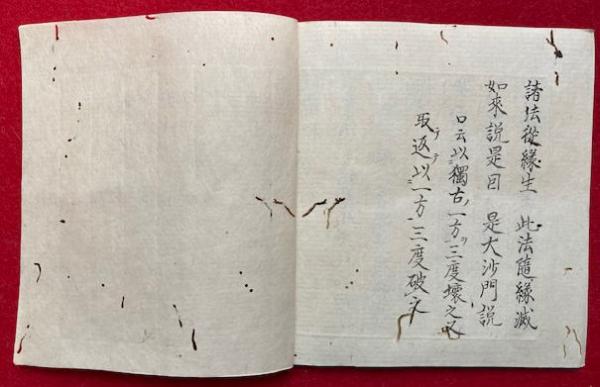 諸法從緣生　此法隨緣滅
如來説是因　是大沙門説
口云以獨古ノ一方ヲ三度壞之
取テ返テ以一方三度破之